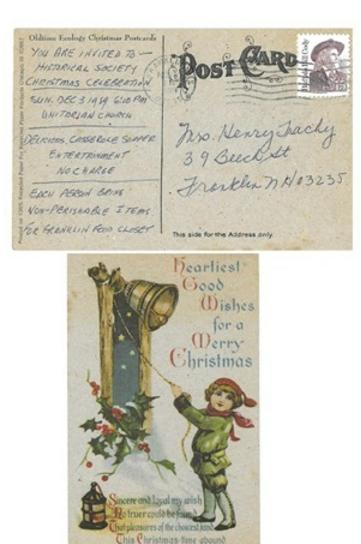 Oldtime Ecology Christmas Postcards
YOU ARE INVITED TO —
HISTORICAL SOCIETY
CHRISTMAS CELEBRATION
SUN. DEC 3 1989 6:00 PM
UNITORIAN CHURCH
DELICIOUS CASSEROLE SUPPER
ENTERTAINMENT
NO CHARGE
EACH PERSON BRING
NON-PERISHABLE ITEMS
FOR FRANKLIN FOOD CLOSET
POST CARD
Mrs. Henry Trachy
39 Beech St
Franklin NH 03235
This side for the Address only.
Heartiest
Good
Wishes
for a
Merry
Christmas
Sincere and loyal my wish
No truer could be found
That pleasures of the choicest kind
This Christmas time abound